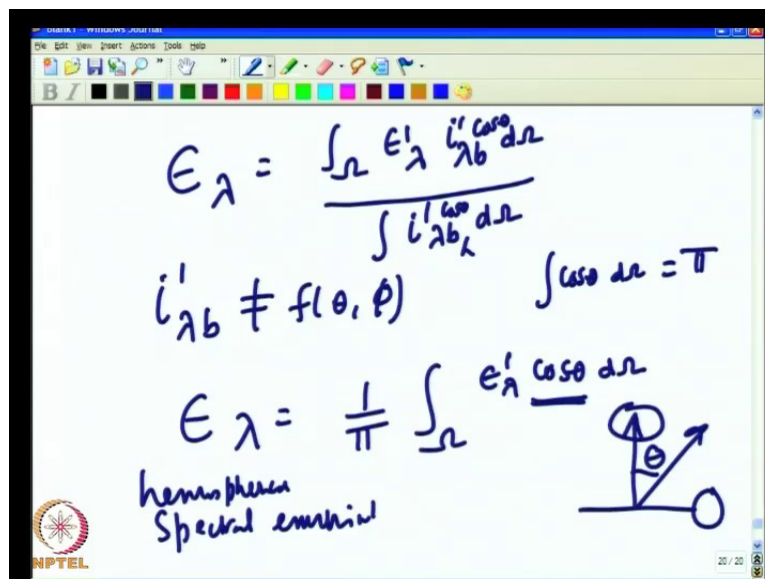 Blank1 - Windows Journal
File Edit View Insert Actions Tools Help
B I
ϵλ = ∫Ω ϵ'λ i'λb cosθ dΩ
∫ i'λb cosθ dΩ
i'λb ≠ f(θ, ϕ) ∫ cosθ dΩ = π
ϵλ = 1/π ∫Ω ϵ'λ cosθ dΩ
θ
Spectral
NPTEL
20 / 20